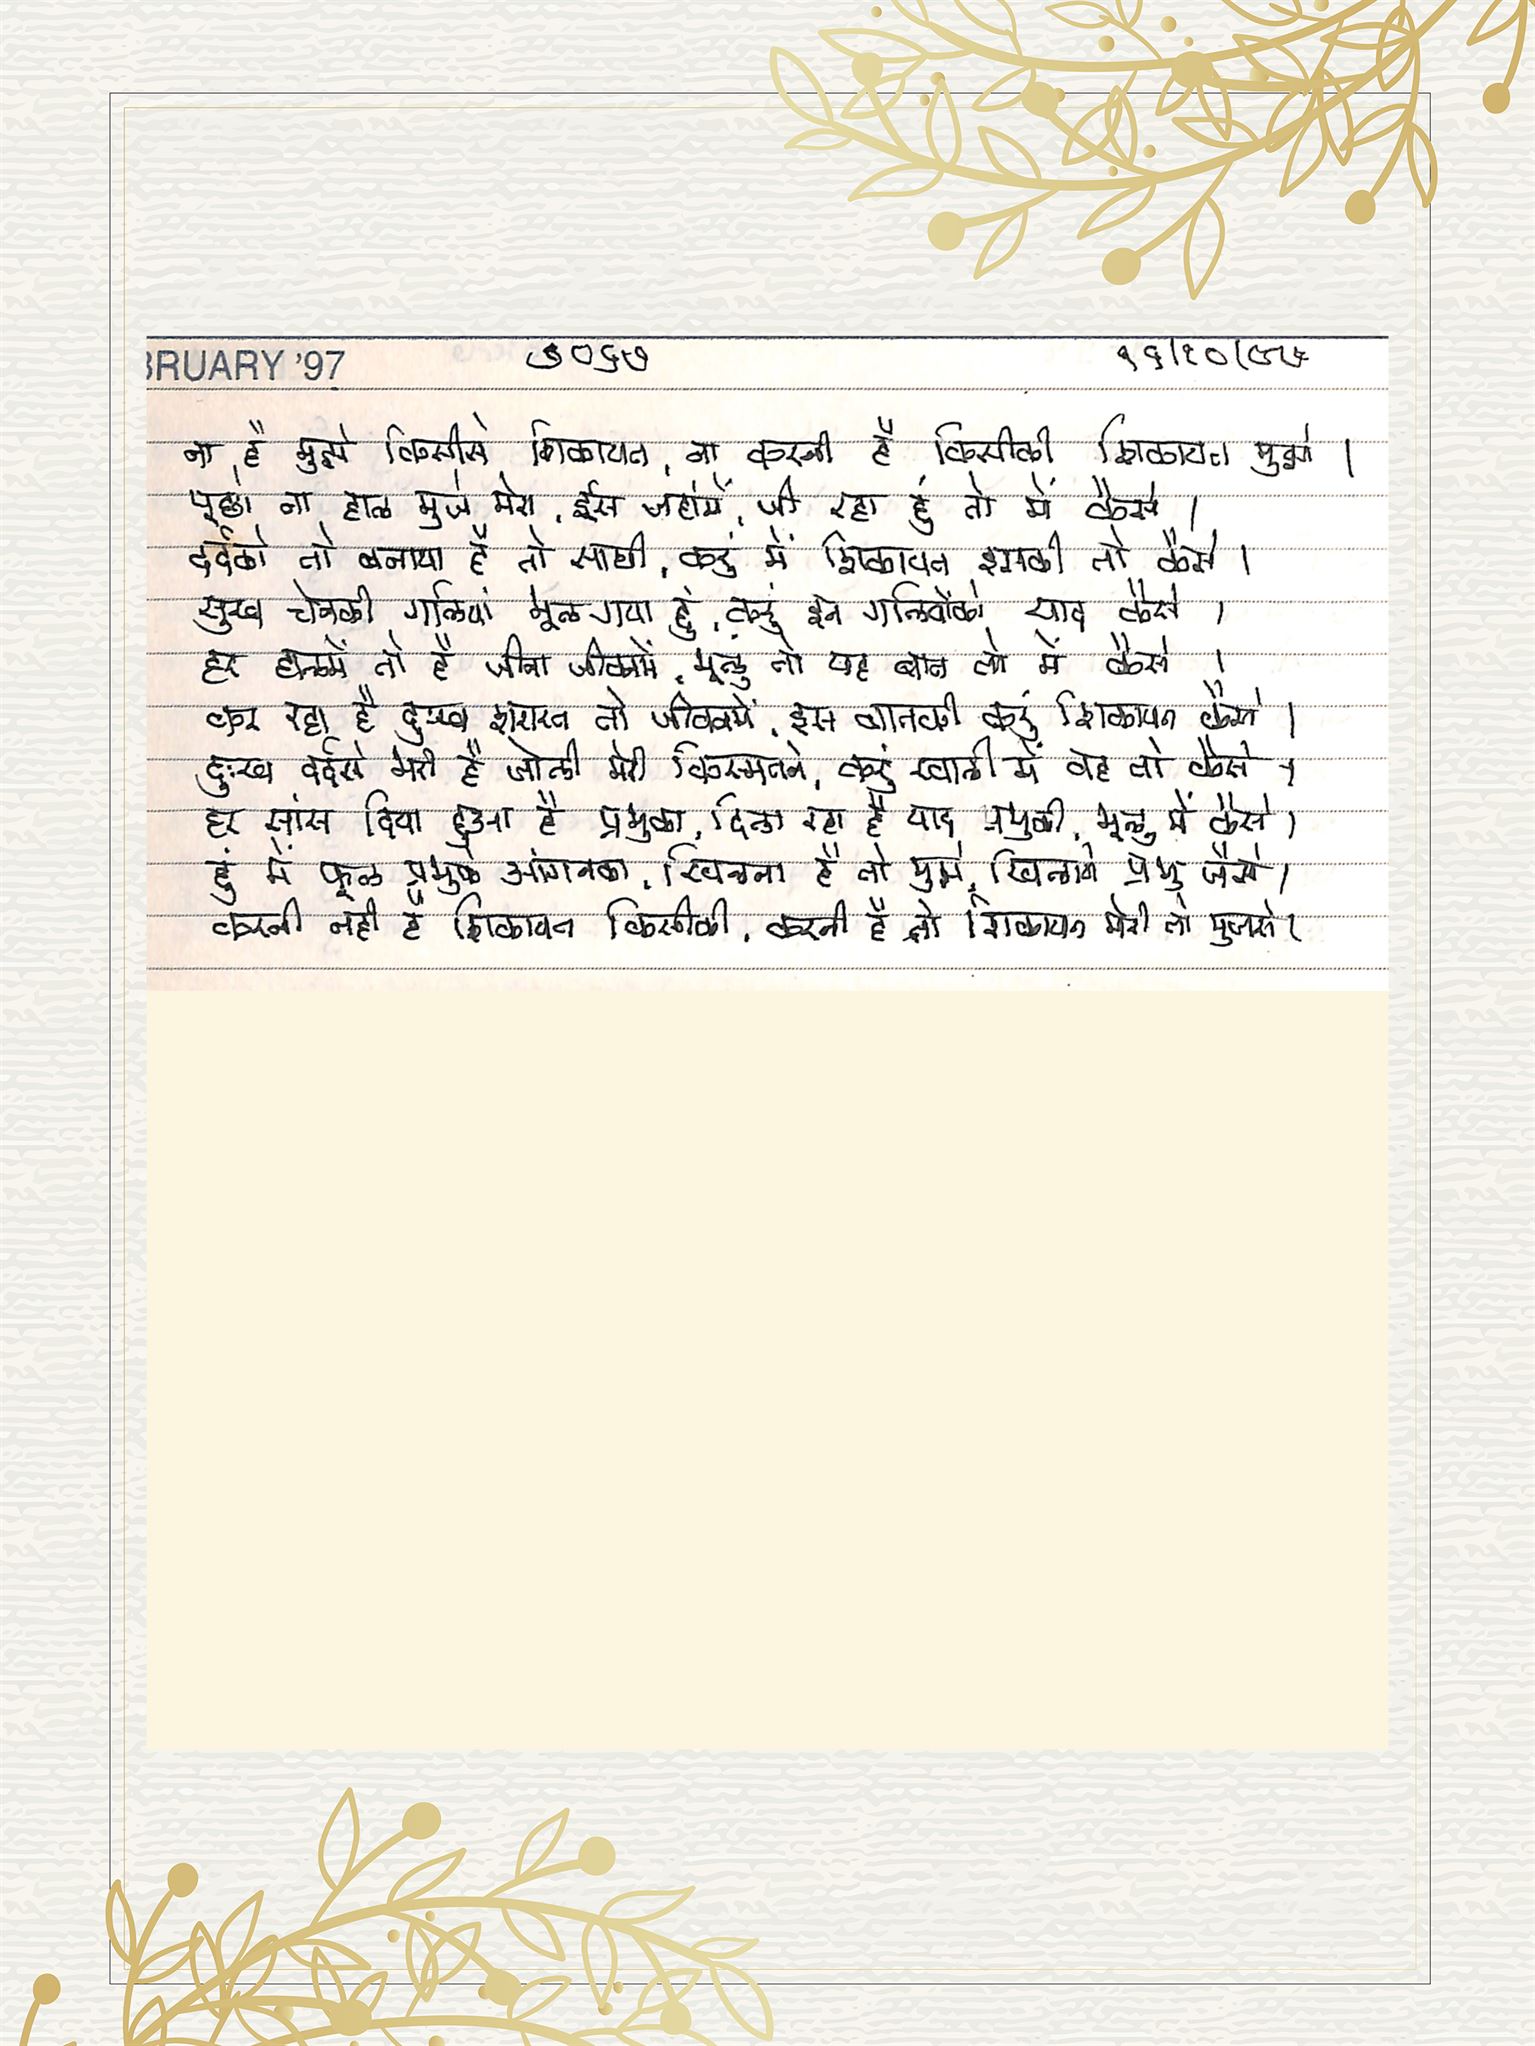 BRUARY '97 ७०६७ १६/१०/९७
ना है मुझे किसीसे शिकायत, ना करनी है किसीकी शिकायत मुझसे ।
पूछो ना हाल मुजसे मेरा, ईस जहांमें, जी रहा हुं तो में कैसे ।
दर्दको तो बनाया है तो साथी, करुं में शिकायत इसकी तो कैसे ।
सुख चेनकी गलियां भूल गया हुं, करुं इन गलियोंको याद कैसे ।
हर हालमें तो है जीना जीवनमें, भूलुं तो यह बात तो में कैसे ।
कर रहा है दुःख शरारत तो जीवनमें, इस बातकी करुं शिकायत कैसे ।
दुःख दर्दसे भरी है जोली मेरी किस्मतने, करुं खाली में वह तो कैसे ।
हर सांस दिया हुआ है प्रभुका, दिला रहा है याद प्रभुकी, भूलुं में कैसे ।
हुं में फूल प्रभुके आंगनका, खिलना है तो मुझे, खिलाये प्रभु जैसे ।
करनी नही है शिकायत किसीकी, करनी है तो शिकायत मेरी तो मुजसे ।